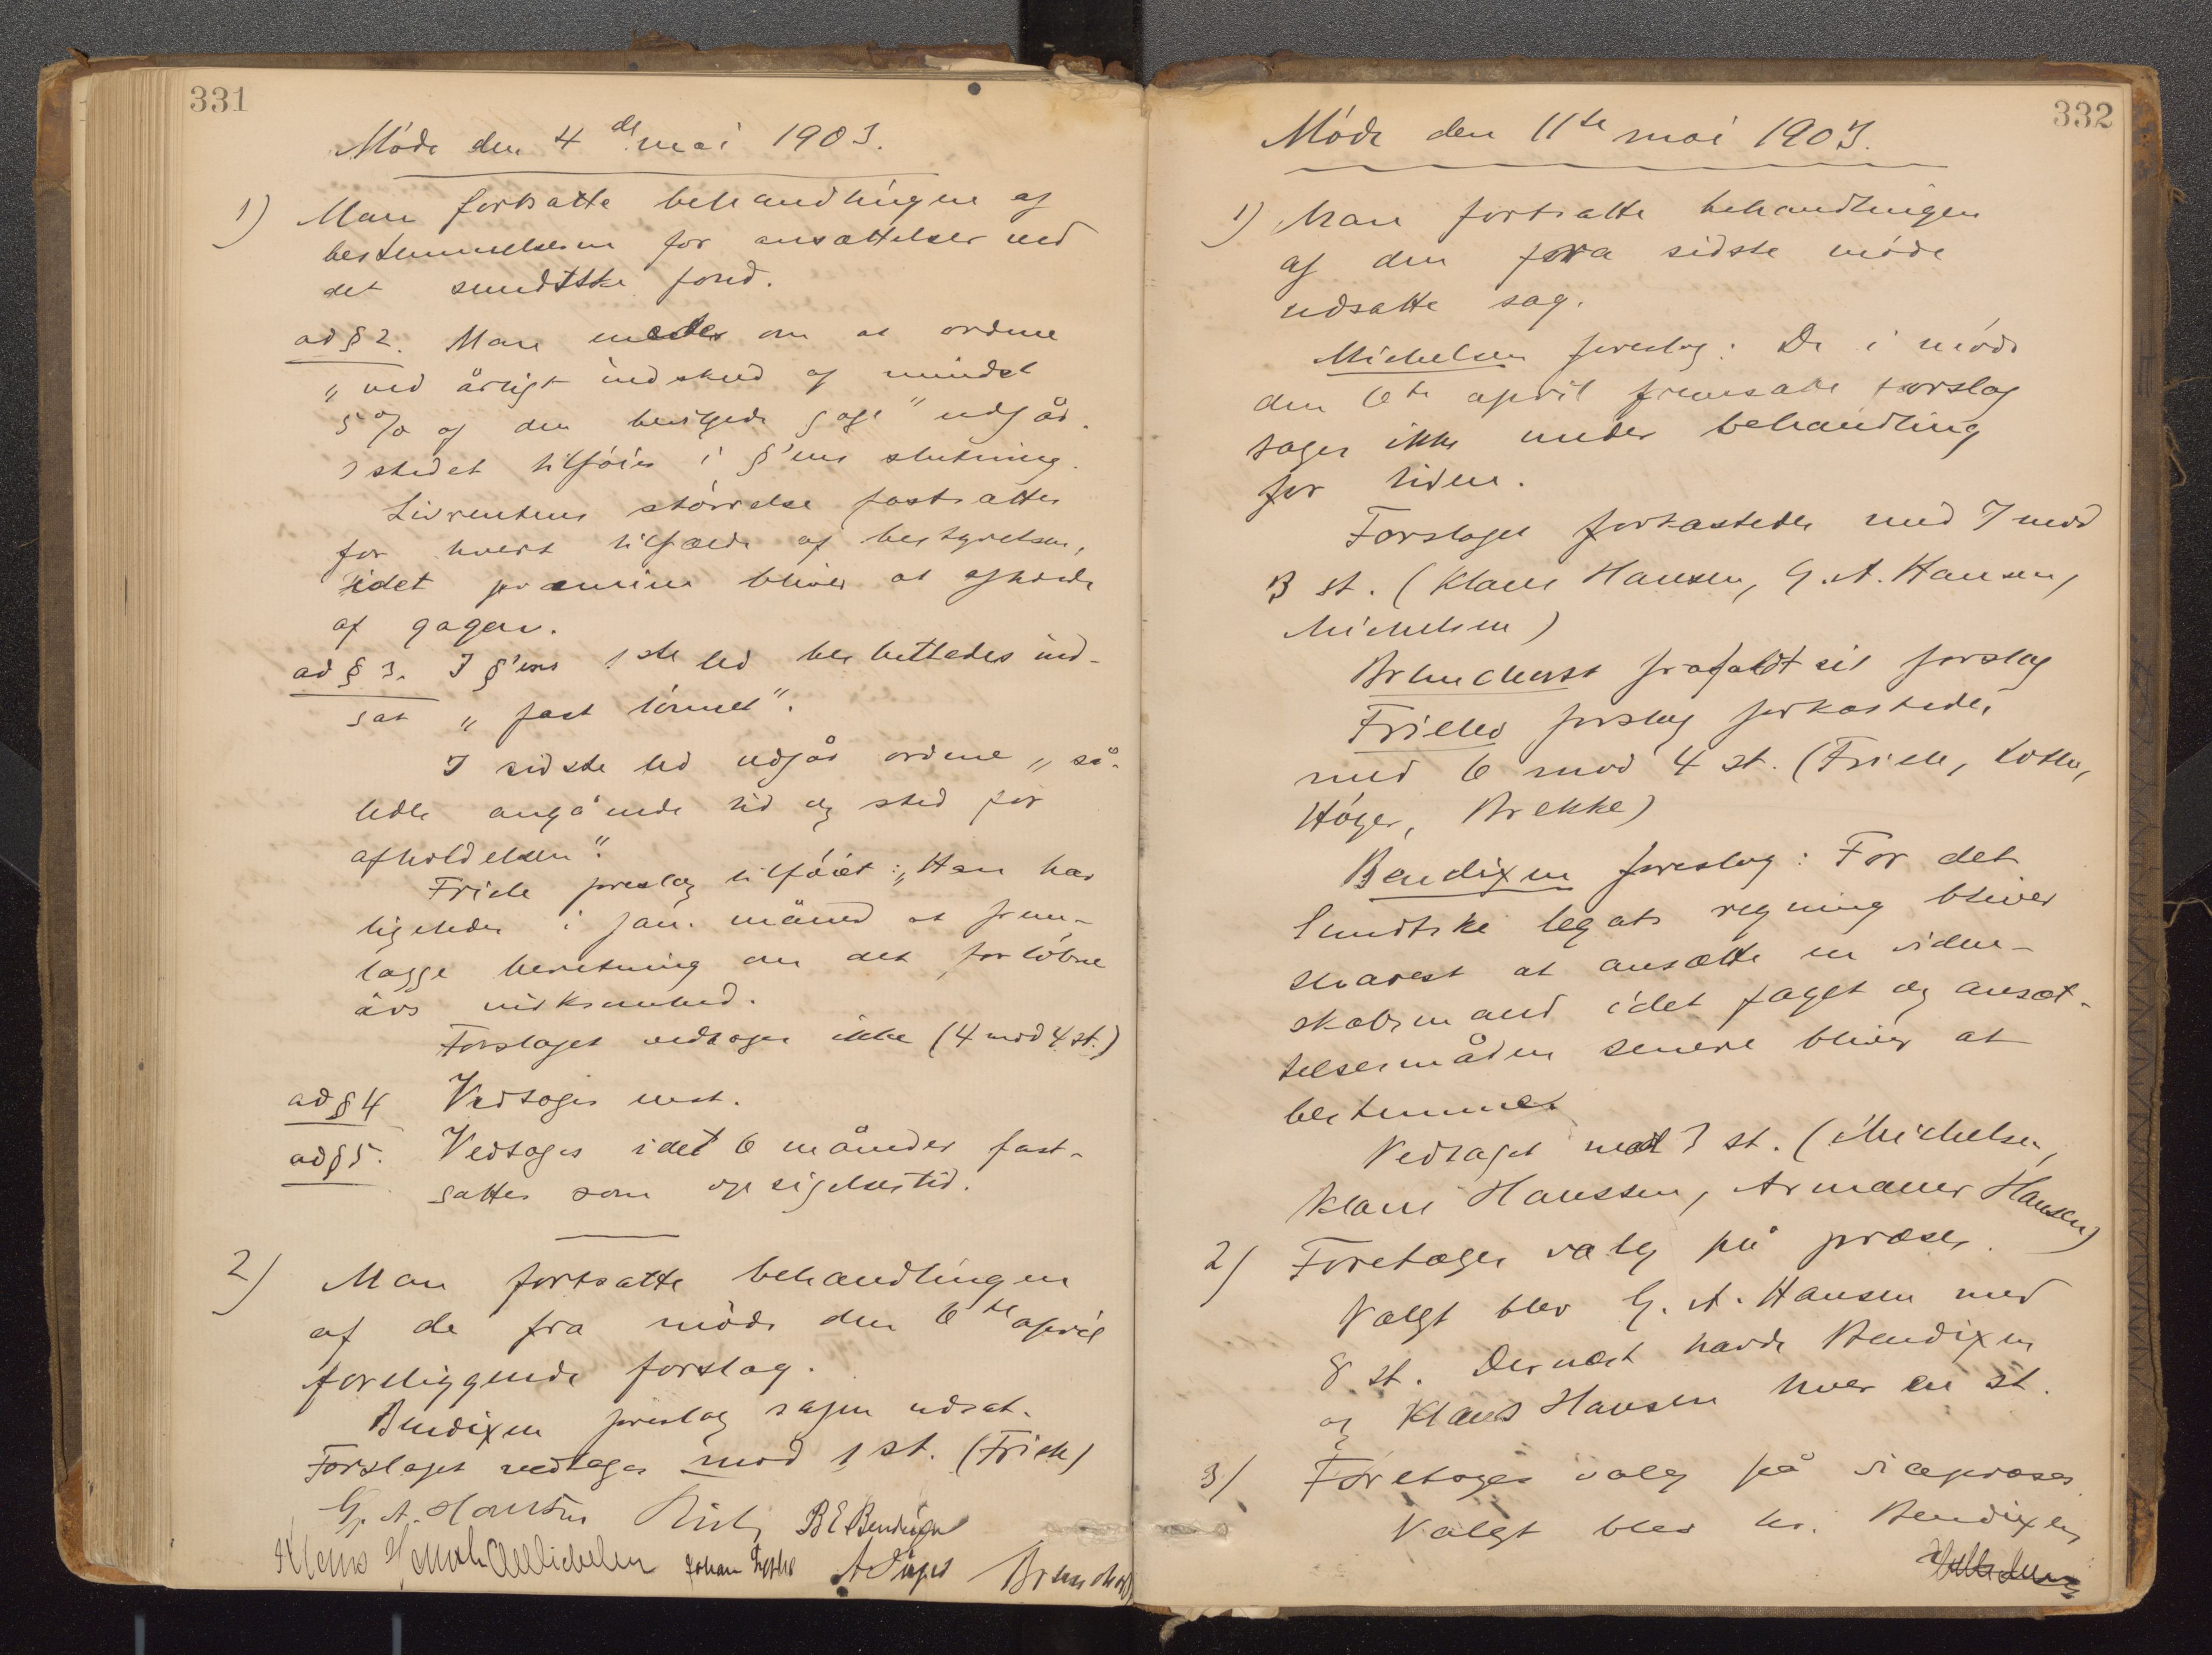 331
Møde den 4de mai 1903.
1) Man fortsatte behandlingen af
bestemmelserne for ansættelser ved
det sundtske fond.
ad § 2. Man enedes om at ordene
"ved årligt indskud af mindst
5 % af den bevilgede gage" udgår.
I stedet tilføies i §'ens slutning.
Livrentens størrelse fastsættes
for hvert tilfælde af bestyrelsen,
idet præmien bliver at afholde
af gagen.
ad § 3. I §'ens 1ste led besluttedes ind-
sat "fast lønnet".
I sidste led udgår ordene "så-
ledes angående tid og sted for
afholdelsen".
Friele foreslog tilføiet: "Han har
ligeledes i jan. måned at frem-
lægge beretning om det forløbne
års virksomhed.
Forslaget vedtoges ikke (4 mod 4 st.)
ad § 4 Vedtoges enst.
ad § 5. Vedtoges idet 6 måneder fast-
sattes som opsigelsestid.
2) Man fortsatte behandlingen
af de fra møde den 6te april
foreliggende forslag.
Bendixen foreslog sagen udsat.
Forslaget vedtoges mod 1 st. (Friele)
G. A. Hansen Friele B E Bendixen
Klaus Hanssen CMichelsen Johan Lothe A Høyer Brunchorst
332
Møde den 11te mai 1903.
1) Man fortsatte behandlingen
af den fra sidste møde
udsatte sag.
Michelsen foreslog: De i møde
den 6te april fremsatte forslag
tages ikke under behandling
for tiden.
Forslaget forkastedes med 7 mod
3 st. (Klaus Hansen, G. A. Hansen,
Michelsen)
Brunchorst frafaldt sit forslag
Frieles forslag forkastedes
med 6 mod 4 st. (Friele, Lothe,
Høyer, Brekke)
Bendixen foreslog: For det
Sundtske legats regning bliver
snarest at ansætte en viden-
skabsmand idet faget og ansæt-
telsesmåden senere bliver at
bestemme
Vedtaget mod 3 st. (Michelsen,
Klaus Hanssen, Armauer Hansen)
2) Foretoges valg på præses.
Valgt blev G. A. Hansen med
8 st. Dernæst havde Bendixen
og Klaus Hansen hver en st.
3) Foretoges valg på vicepræses
Valgt blev hr. Bendixen